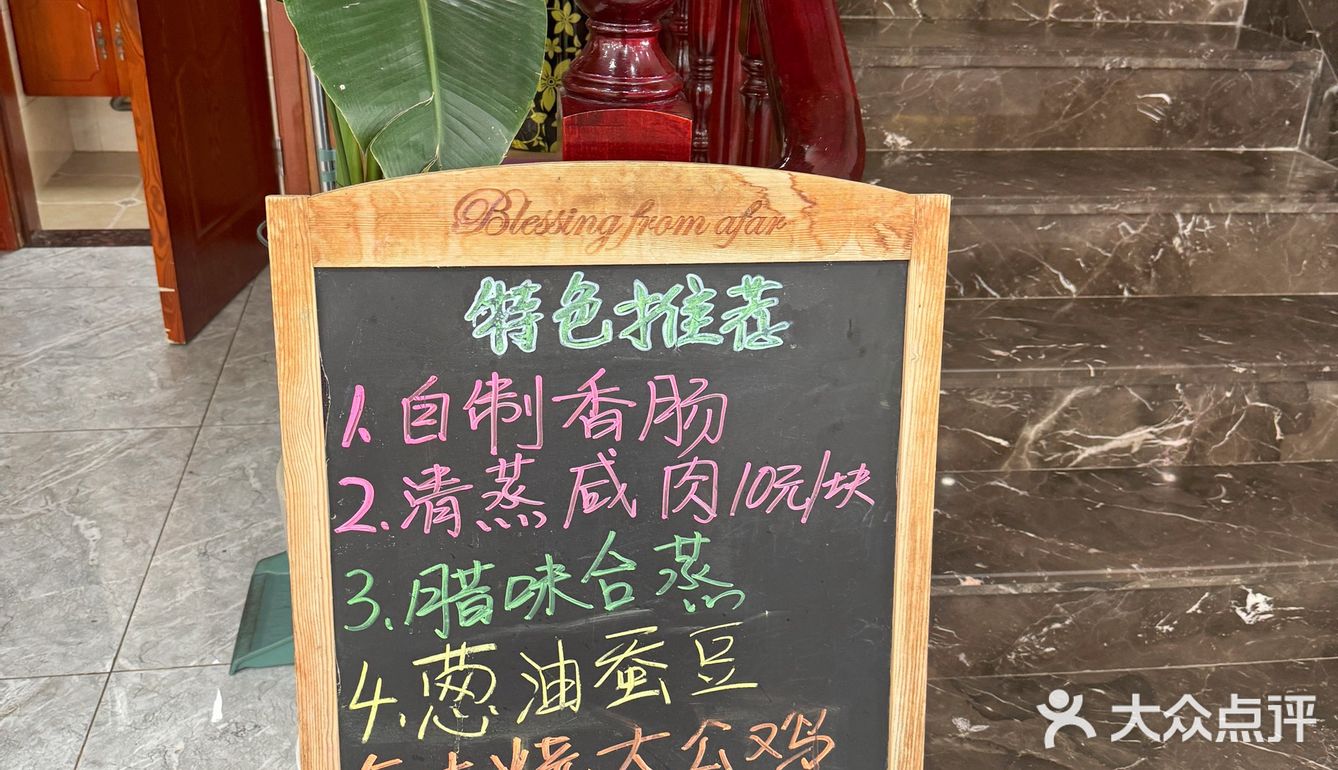 Blessing from afar
特色推荐
1.自制香肠
2.清蒸咸肉10元/块
3.腊味合蒸
4.葱油蚕豆
烧大公鸡
大众点评